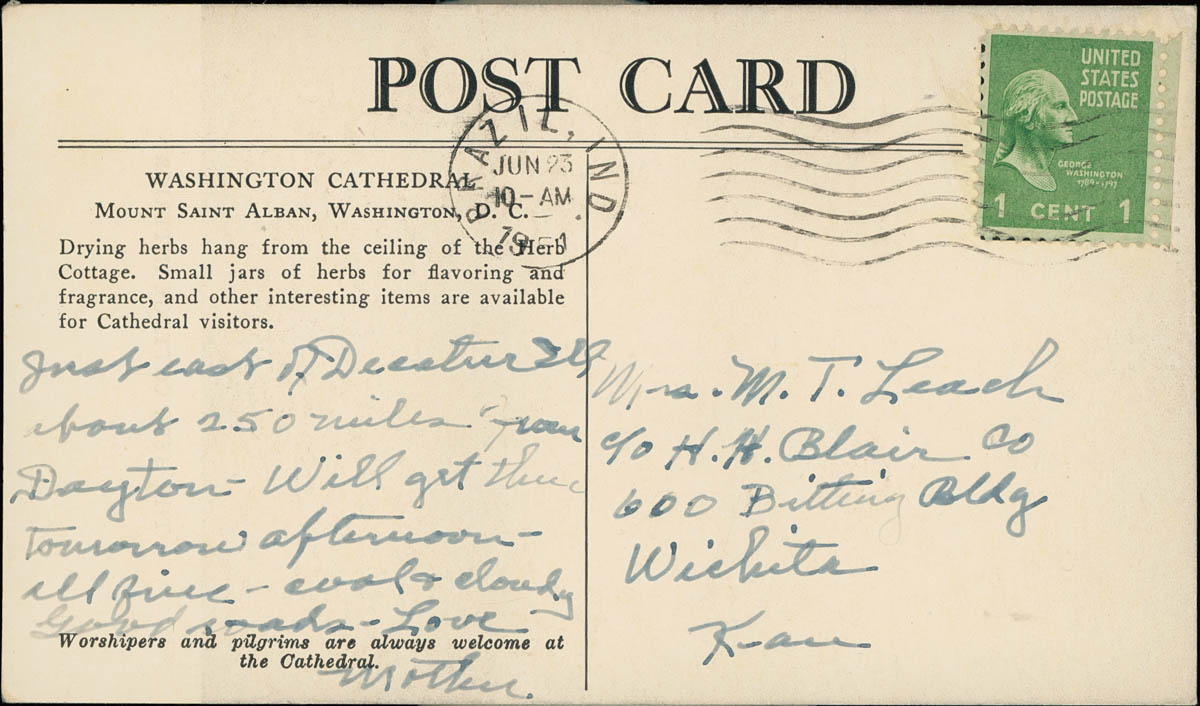 POST CARD
BRAZIL, IND.
JUN 23
10-AM
1951
UNITED
STATES
POSTAGE
GEORGE
WASHINGTON
1789-1797
1 CENT 1
WASHINGTON CATHEDRAL
MOUNT SAINT ALBAN, WASHINGTON, D. C.
Drying herbs hang from the ceiling of the Herb
Cottage. Small jars of herbs for flavoring and
fragrance, and other interesting items are available
for Cathedral visitors.
Just east of Decatur Ill
about 250 miles from
Dayton - Will get there
tomorrow afternoon -
all fine - cool & cloudy
Good roads - Love
Worshipers and pilgrims are always welcome at
the Cathedral.
Mother.
Mrs. M. T. Leach
c/o H. H. Blair Co
600 Bitting Bldg
Wichita
Kan